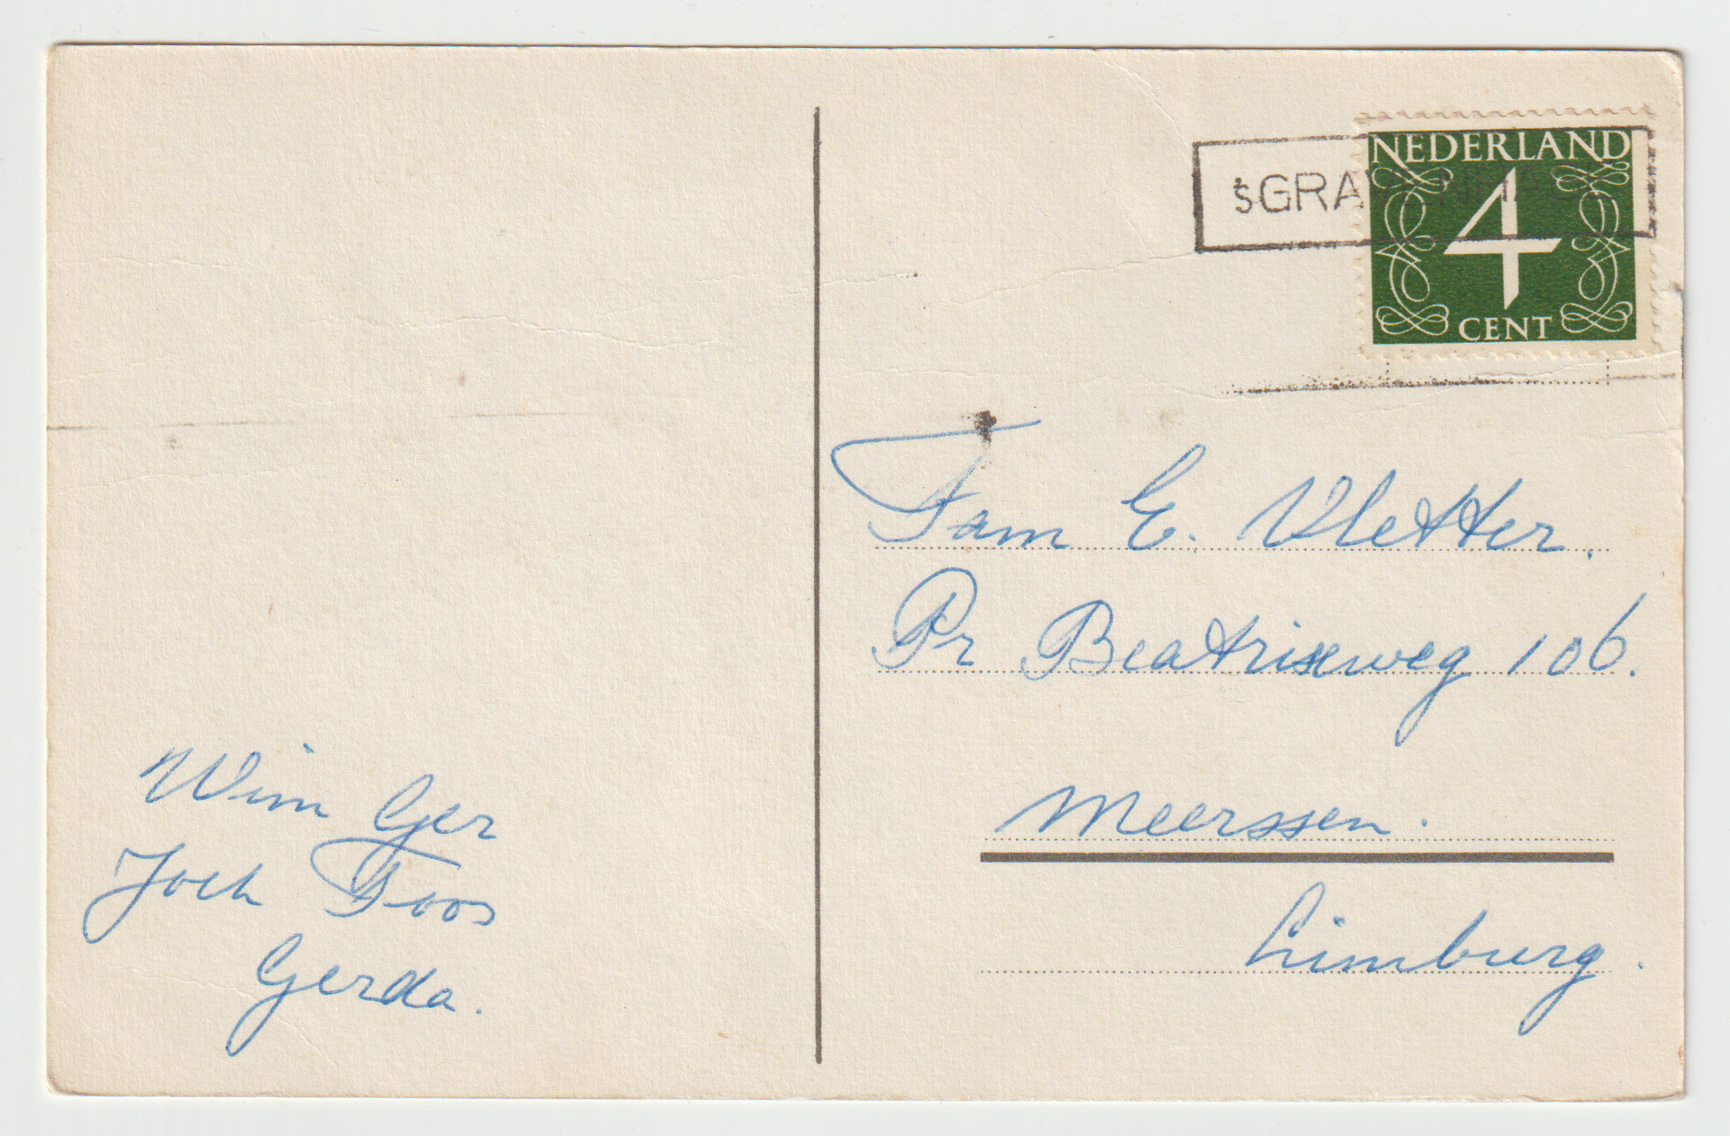 NEDERLAND
'sGRAVENHAGE
4
CENT
Fam E. Vletter.
Pr Beatrixweg 106.
Meerssen.
Limburg.
Wim Ger
Joch Toos
Gerda.